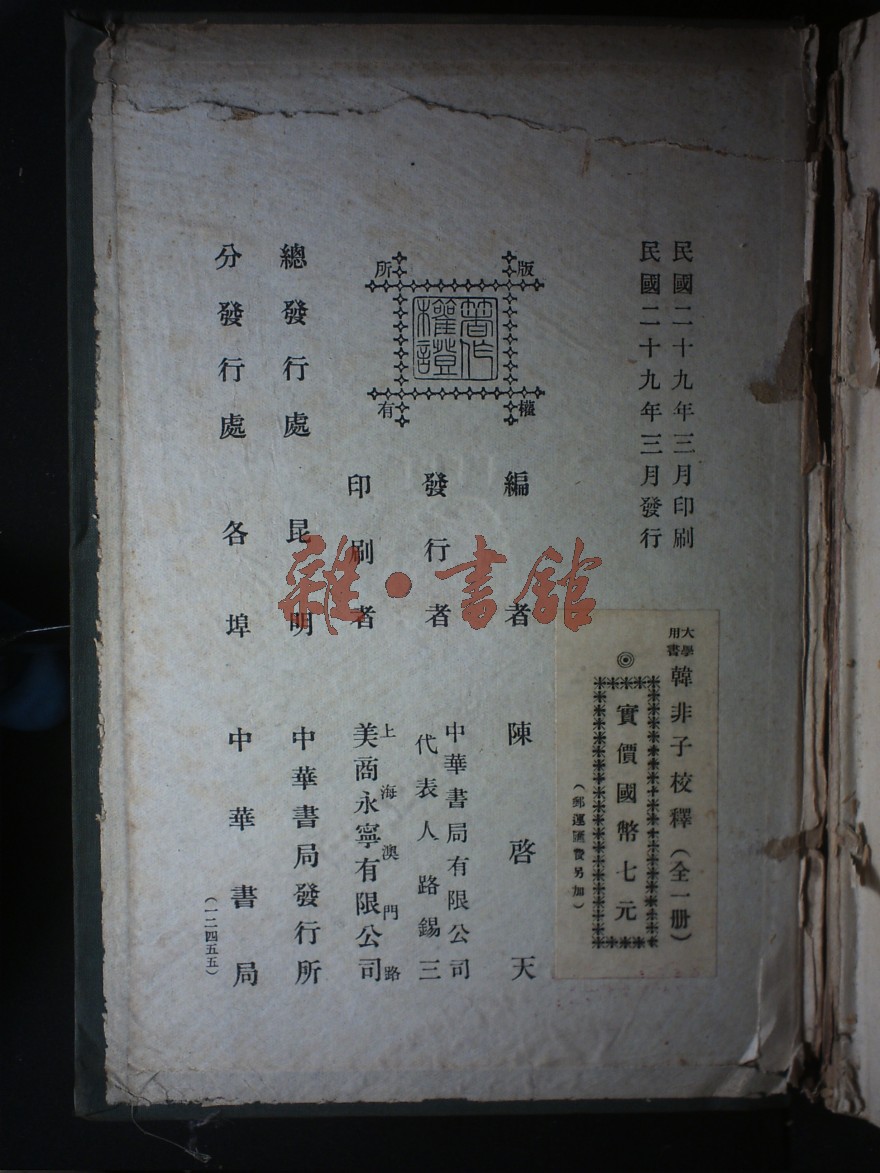 民國二十九年三月印刷
民國二十九年三月發行
大學用書
韓非子校釋（全一册）
◎
實價國幣七元
（郵運匯費另加）
版權所有
著作權證
編者 陳啓天
發行者 中華書局有限公司
代表人 路錫三
印刷者 上海澳門路
美商永寧有限公司
總發行處 昆明 中華書局發行所
分發行處 各埠 中華書局
（一二四五五）
雜·書館